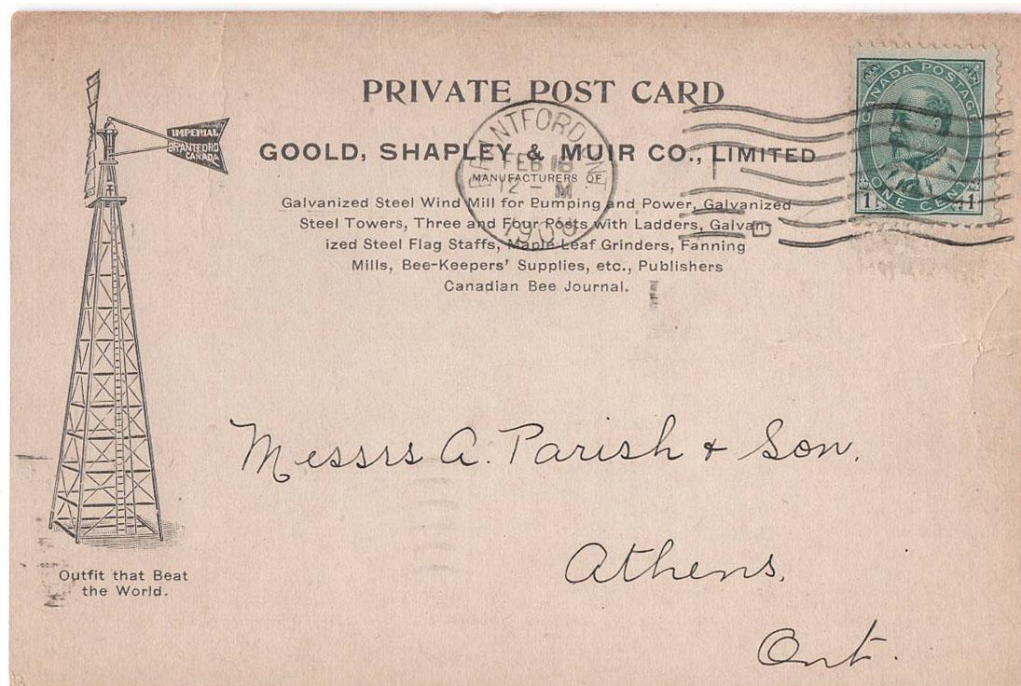 PRIVATE POST CARD
GOOLD, SHAPLEY & MUIR CO., LIMITED
MANUFACTURERS OF
Galvanized Steel Wind Mill for Pumping and Power, Galvanized
Steel Towers, Three and Four Posts with Ladders, Galvan-
ized Steel Flag Staffs, Maple Leaf Grinders, Fanning
Mills, Bee-Keepers' Supplies, etc., Publishers
Canadian Bee Journal.
IMPERIAL
BRANTFORD
CANADA
BRANTFORD, ONT.
FEB 16
12 - M
CANADA POSTAGE
1 ONE CENT 1
Messrs A. Parish & Son.
Athens,
Ont.
Outfit that Beat
the World.